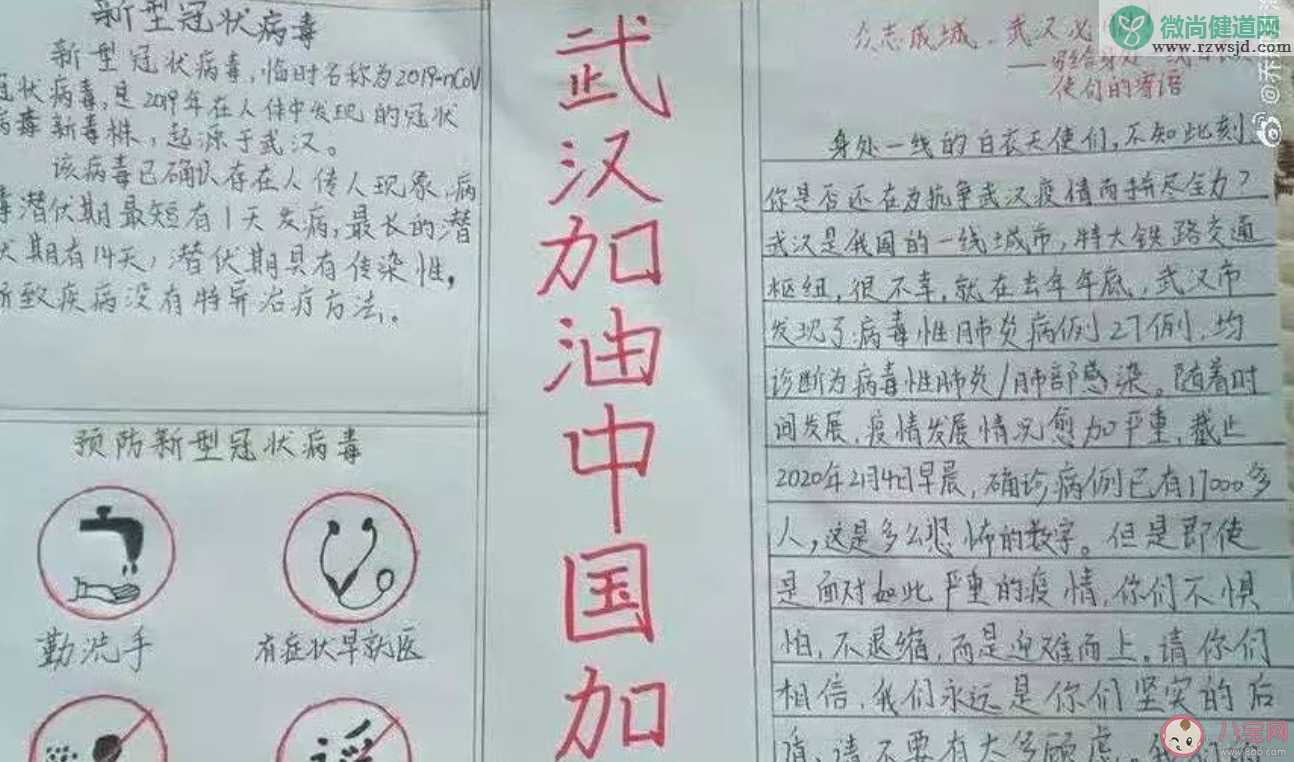 新型冠状病毒
新型冠状病毒,临时名称为2019-nCoV
冠状病毒,是2019年在人体中发现的冠状
病毒新毒株,起源于武汉。
该病毒已确认存在人传人现象,病
毒潜伏期最短有1天发病,最长的潜
伏期有14天,潜伏期具有传染性,
所致疾病没有特异治疗方法。
预防新型冠状病毒
勤洗手
有症状早就医
武汉加油中国加
众志成城,武汉必
使们的寄语
身处一线的白衣天使们,不知此刻
你是否还在为抗争武汉疫情而拼尽全力?
武汉是我国的一线城市,特大铁路交通
枢纽,很不幸,就在去年年底,武汉市
发现了病毒性肺炎病例27例,均
诊断为病毒性肺炎/肺部感染。随着时
间发展,疫情发展情况愈加严重,截止
2020年2月4日早晨,确诊病例已有17000多
人,这是多么恐怖的数字。但是即使
是面对如此严重的疫情,你们不惧
怕,不退缩,而是迎难而上。请你们
相信,我们永远是你们坚实的后
请不要有太多顾虑。
微尚健道网
www.rzwsjd.com
八宝网
www.8bb.com